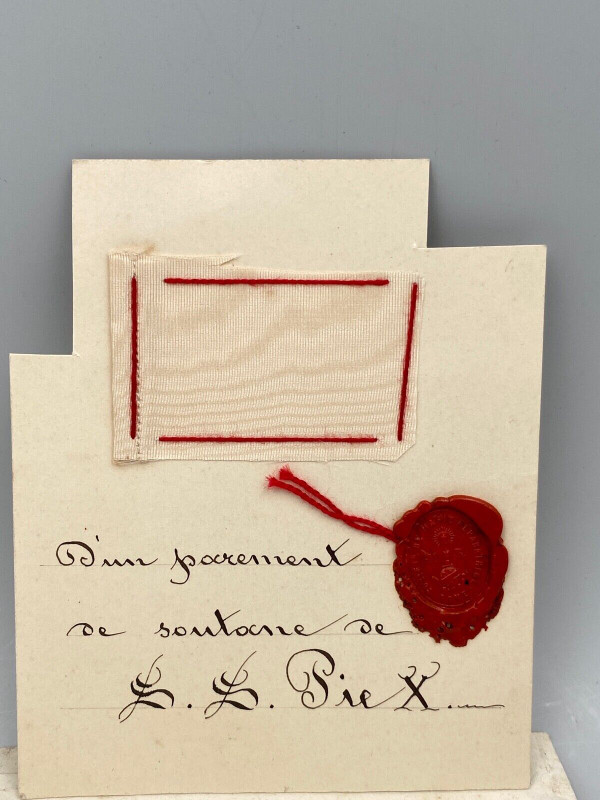 D'un parement
de soutane de
S. S. Pie X.